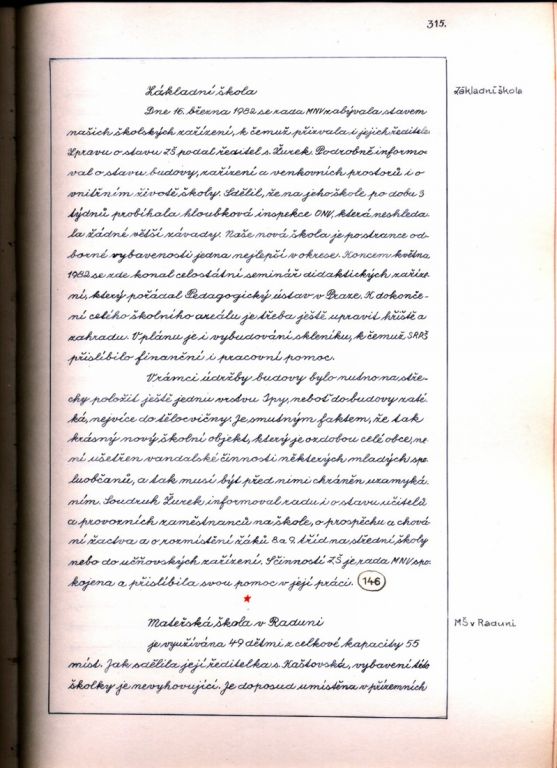 315.
Základní škola
Základní škola
Dne 16. března 1982 se rada MNV zabývala stavem
našich školských zařízení, k čemuž přizvala i jejich ředitele.
Zprávu o stavu ZŠ podal ředitel s. Žurek. Podrobně informo-
val o stavu budovy, zařízení a venkovních prostorů i o
vnitřním životě školy. Sdělil, že na jeho škole po dobu 3
týdnů probíhala hloubková inspekce ONV, která neshleda-
la žádné větší závady. Naše nová škola je po stránce od-
borné vybavenosti jedna nejlepší v okrese. Koncem května
1982 se zde konal celostátní seminář didaktických zaříze-
ní, který pořádal Pedagogický ústav v Praze. K dokonče-
ní celého školního areálu je třeba ještě upravit hřiště a
zahradu. V plánu je i vybudování skleníku, k čemuž SRPŠ
přislíbilo finanční i pracovní pomoc.
V rámci údržby budovy bylo nutno na stře-
chy položit ještě jednu vrstvu Ipy, neboť do budovy zaté-
ká, nejvíce do tělocvičny. Je smutným faktem, že tak
krásný nový školní objekt, který je ozdobou celé obce, ne-
ní ušetřen vandalské činnosti některých mladých spo-
luobčanů, a tak musí být před nimi chráněn uzamyká-
ním. Soudruh Žurek informoval radu i o stavu učitelů
a provozních zaměstnanců na škole, o prospěchu a chová-
ní žactva a o rozmístění žáků 8. a 9. tříd na střední školy
nebo do učňovských zařízení. S činností ZŠ je rada MNV spo-
kojena a přislíbila svou pomoc v její práci. 146
Mateřská škola v Raduni
MŠ v Raduni
je využívána 49 dětmi z celkové kapacity 55
míst. Jak sdělila její ředitelka s. Kaštovská, vybavení této
školky je nevyhovující. Je doposud umístěna v přízemních